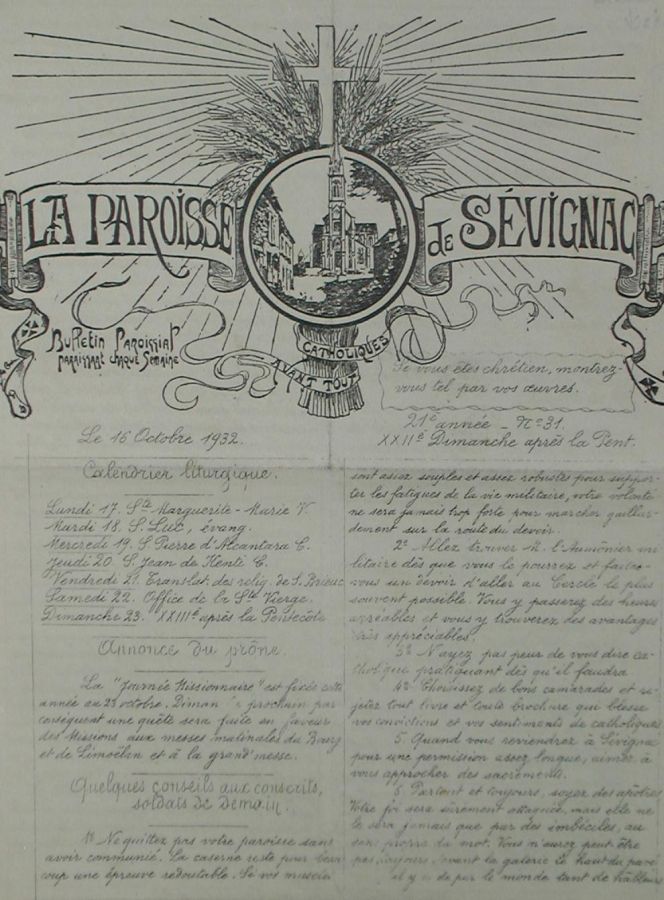 LA PAROISSE
DE SÉVIGNAC
Bulletin Paroissial
paraissant chaque Semaine
CATHOLIQUES
AVANT TOUT
Si vous êtes chrétien, montrez-
vous tel par vos œuvres.
Le 16 Octobre 1932.
21e année - No 31.
XXIIe Dimanche après la Pent.
Calendrier liturgique.
Lundi 17. Ste Marguerite-Marie V.
Mardi 18. S. Luc, évang.
Mercredi 19. S. Pierre d'Alcantara C.
Jeudi 20. S. Jean de Kenti C.
Vendredi 21. Translat. des reliq. de S. Brieuc
Samedi 22. Office de la Ste Vierge.
Dimanche 23. XXIIIe après la Pentecôte
Annonce du prône.
La "Journée Missionnaire" est fixée cette
année au 23 octobre. Dimanche prochain par
conséquent une quête sera faite en faveur
des Missions aux messes matinales du Bourg
et de Limoëlan et à la grand'messe.
Quelques conseils aux conscrits,
soldats de Demain.
1o Ne quittez pas votre paroisse sans
avoir communié. La caserne reste pour beau
coup une épreuve redoutable. Si vos muscles
sont assez souples et assez robustes pour suppor-
ter les fatigues de la vie militaire, votre volonté
ne sera jamais trop forte pour marcher gaillar-
dement sur la route du devoir.
2o Allez trouver M. l'Aumônier mi-
litaire dès que vous le pourrez et faites-
vous un devoir d'aller au Cercle le plus
souvent possible. Vous y passerez des heures
agréables et vous y trouverez des avantages
très appréciables.
3o N'ayez pas peur de vous dire ca-
tholique pratiquant dès qu'il faudra
4o Choisissez de bons camarades et re-
jetez tout livre et toute brochure qui blesse
vos convictions et vos sentiments de catholiques
5. Quand vous reviendrez à Sévignac
pour une permission assez longue, aimez à
vous approcher des sacrements.
6 Partout et toujours, soyez des apôtres
Votre foi sera sûrement attaquée, mais elle ne
le sera jamais que par des imbéciles, au
sens propre du mot. Vous n'aurez peut être
pas toujours, devant la galerie le haut du pavé
il y a de par le monde tant de hâbleurs